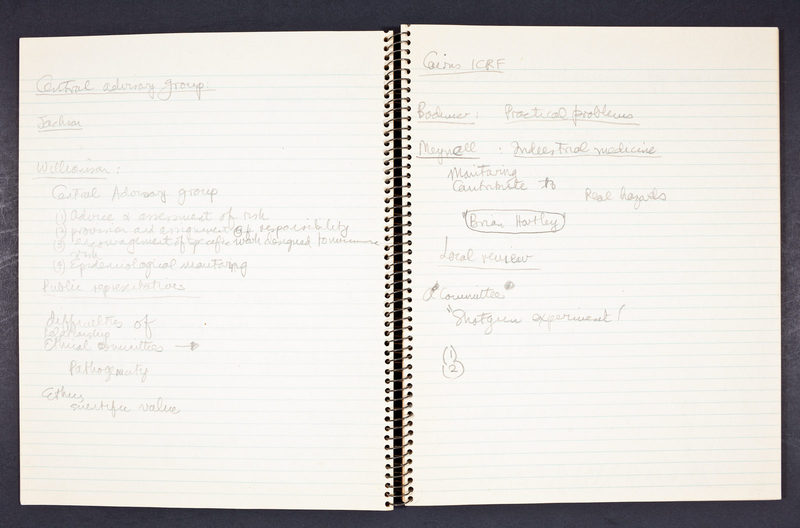 Central advisory group:
Jackson
Williamson:
Central Advisory group
(1) Advice & assessment of risk
(2) provision and assignment of responsibility
(3) encouragement of specific work designed to minimise
risk
(4) Epidemiological monitoring
Public representatives
difficulties of
Ethical committees →
Pathogenicity
Ethics
scientific value
Cairns ICRF
Bodmer: Practical problems
Meynell: Industrial medicine
Monitoring
Contribute to Real hazards
Brian Hartley
Local review
"Committee"
"Shotgun experiment"
(1)
(2)